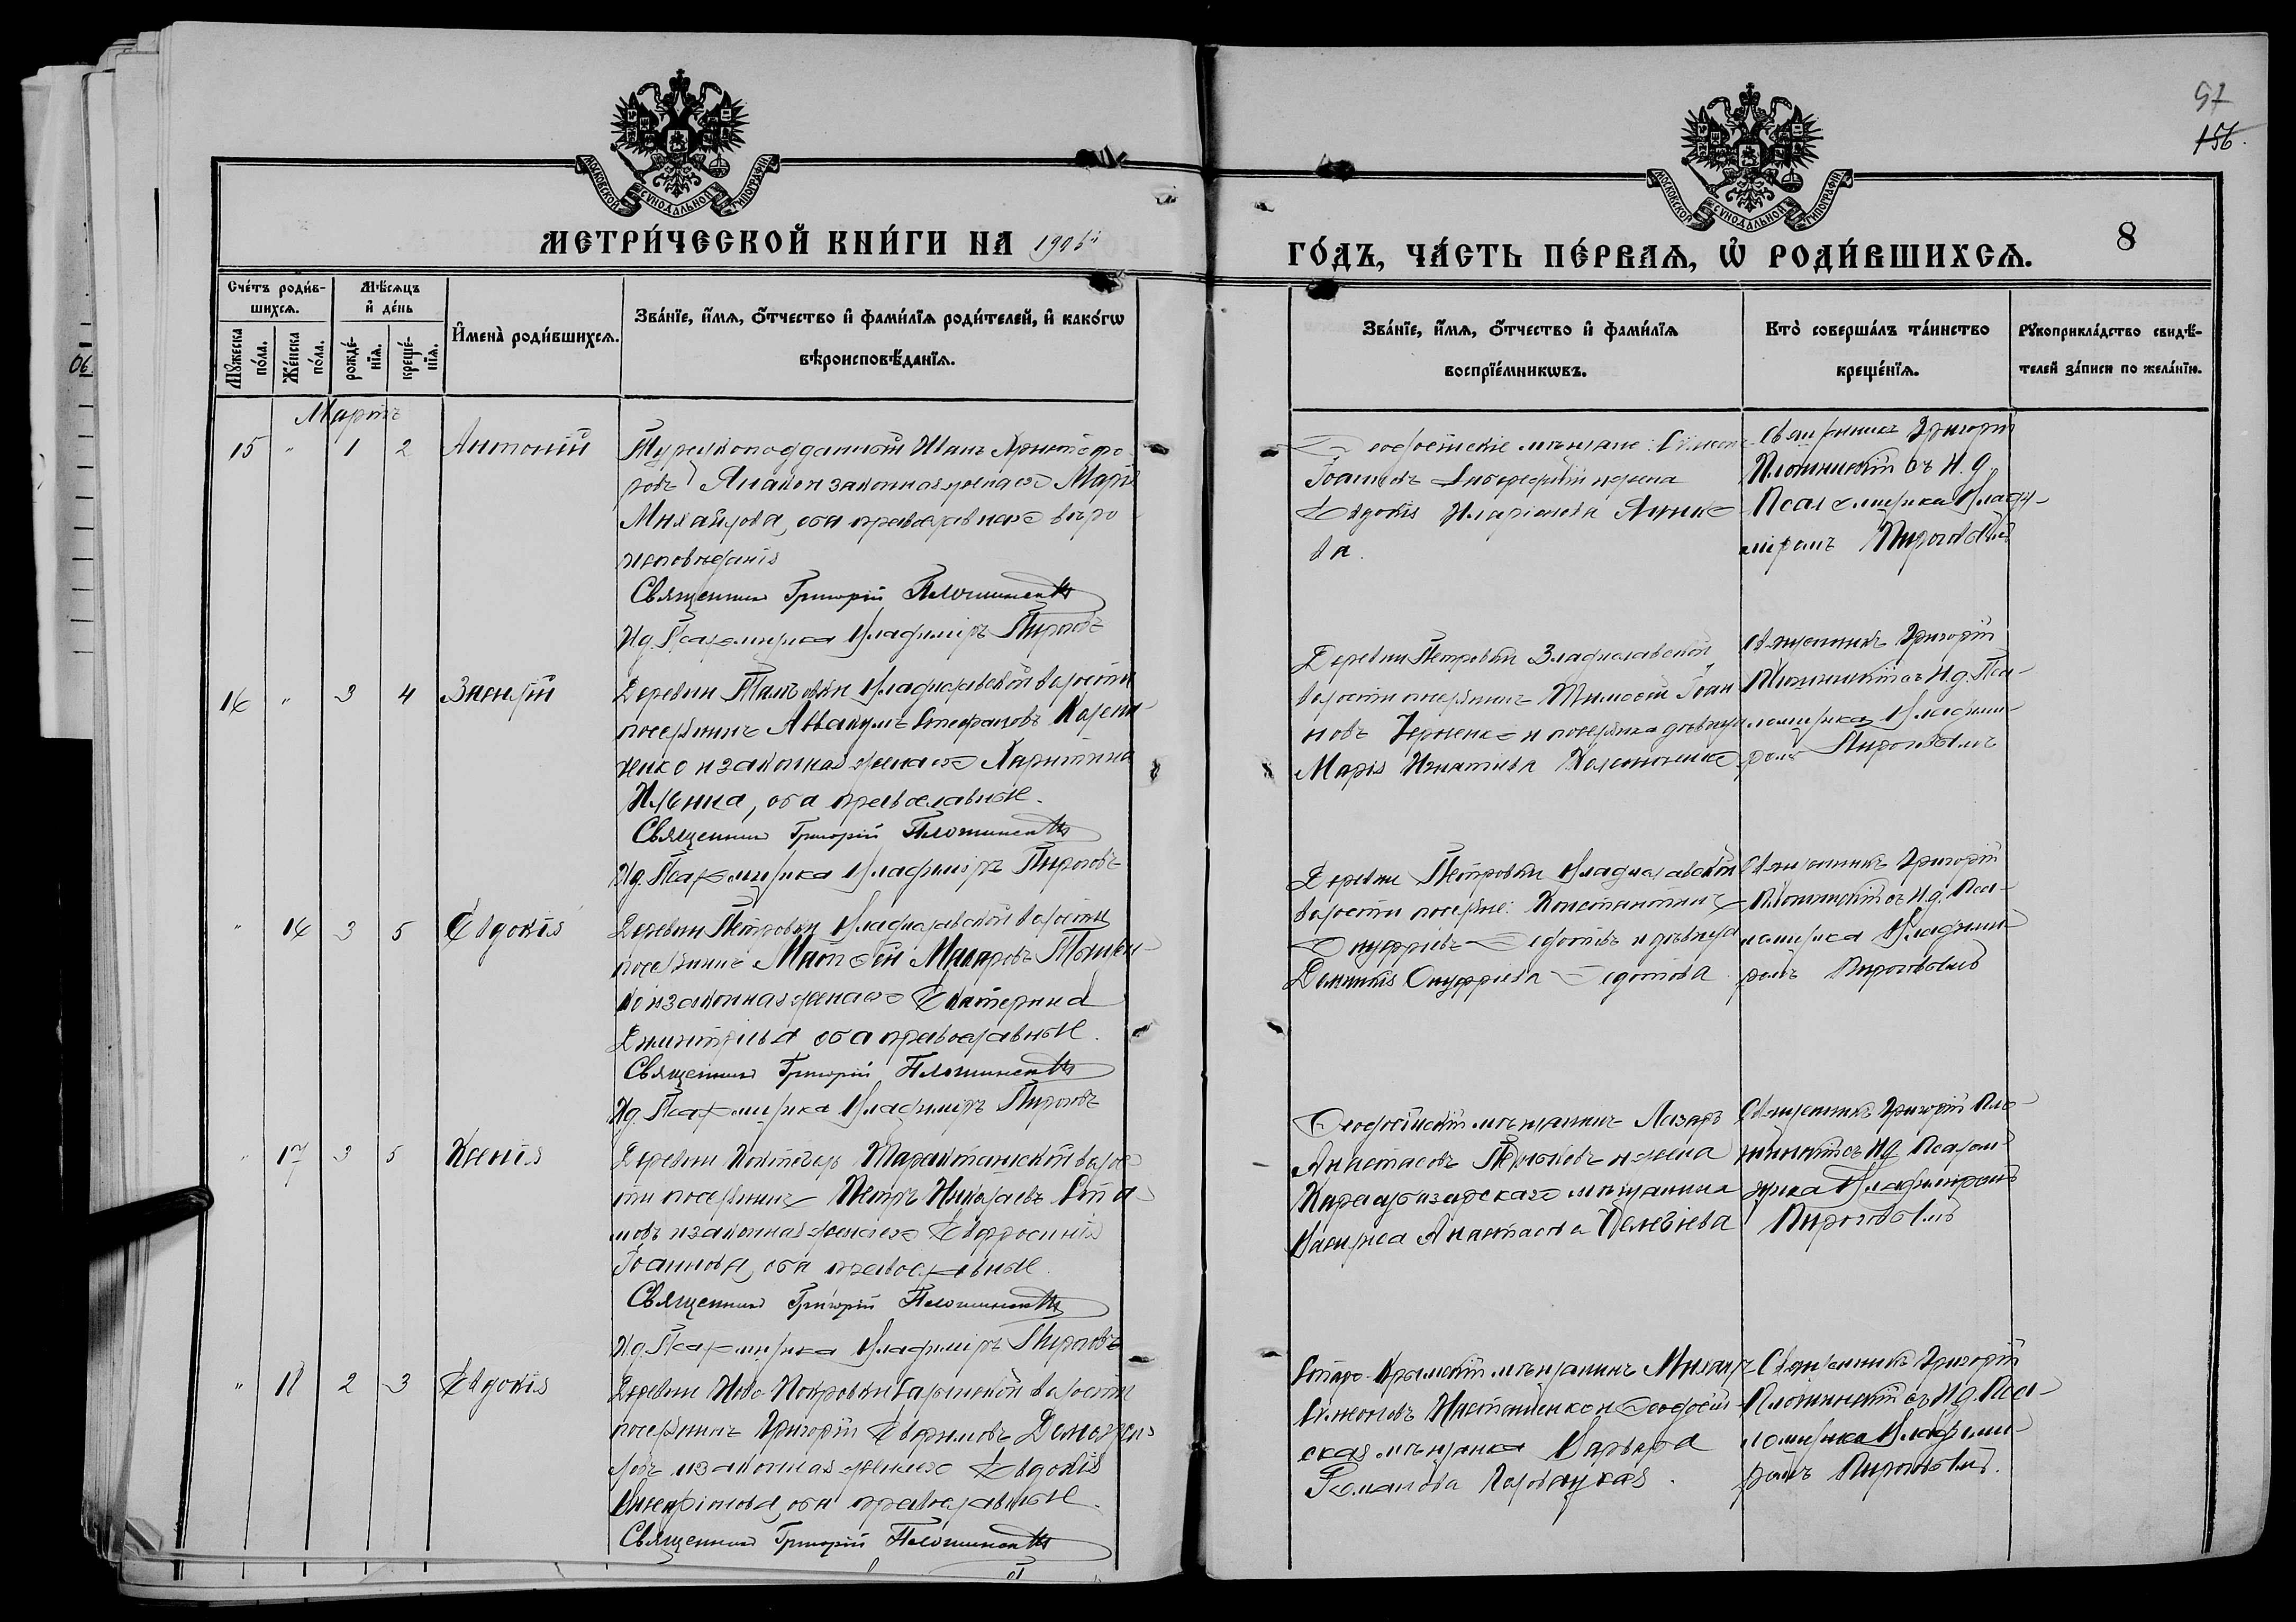 57
156
МОСКОВСКОЙ СУНОДАЛЬНОЙ ТИПОГРАФІИ
МОСКОВСКОЙ СУНОДАЛЬНОЙ ТИПОГРАФІИ
МЕТРИ́ЧЕСКОЙ КНИ́ГИ НА 1906й
ГО́ДЪ, ЧА́СТЬ ПЕ́РВАѦ, Ѡ҆ РОДИ́ВШИХСѦ. 8
Сче́тъ роди́в-
шихсѧ.
Мꙋ́жеска по́ла.
Же́нска по́ла.
Мѣ́сѧцъ
и҆ де́нь
рожде́-нїѧ.
креще́-нїѧ.
И҆мена̀ роди́вшихсѧ.
Зва́нїе, и҆́мѧ, ѻ҆́тчество и҆ фами́лїѧ роди́телей, и҆ како́гѡ
вѣроисповѣ́данїѧ.
Зва́нїе, и҆́мѧ, ѻ҆́тчество и҆ фами́лїѧ
воспрїе́мникѡвъ.
Кто̀ соверша́лъ та́инство
креще́нїѧ.
Рꙋкоприкла́дство свидѣ́-
телей за́писи по жела́нїю.
06
Мартъ
15 " 1 2 Антоній
Турецкоподданный Иванъ Христофо-
ровъ и законная жена его Марія
Михайлова, оба православнаго вѣро
исповѣданія
Священникъ Григорій Плошинскій
И.д. Псаломщика Владиміръ Пироговъ
Ѳеодосійскіе мѣщане: Симеонъ
Іоанновъ и жена
Евдокія Иларіонова
ва.
Священникъ Григорій
Плошинскій съ И. д.
Псаломщика Влади-
міромъ Пироговымъ
16 " 3 4 Зиновій
Деревни Владиславской волости
поселянинъ Аввакумъ Стефановъ
и законная жена его Харитина
Ильина, оба православные.
Священникъ Григорій Плошинскій
И.д. Псаломщика Владиміръ Пироговъ
Деревни Петровки Владиславской
волости поселянинъ Тимоѳей Іоан
новъ и поселянка дѣвица
Марія Игнатіева
Священникъ Григорій
Плошинскій съ И.д. Пса-
ломщика Владими-
ромъ Пироговымъ
" 16 3 5 Евдокія
Деревни Петровки Владиславской волости
поселянинъ Матѳей Макаровъ
ко и законная жена его Екатерина
Димитріева оба православные.
Священникъ Григорій Плошинскій
И.д. Псаломщика Владиміръ Пироговъ
Деревни Петровки Владиславской
волости поселяне: Константинъ
Онуфріевъ Ѳедотовъ и дѣвица
Домникія Онуфріева Ѳедотова
Священникъ Григорій
Плошинскій съ И.д. Пса-
ломщика Владими-
ромъ Пироговымъ
" 17 3 5 Ксенія
Деревни Коктебель Таракташской волос-
ти поселянинъ Петръ Николаевъ
новъ и законная жена его Евфросинія
Іоаннова, оба православные.
Священникъ Григорій Плошинскій
И.д. Псаломщика Владиміръ Пироговъ
Ѳеодосійскій мѣщанинъ Лазарь
Анастасовъ и жена
Карасубазарскаго мѣщанина
Василиса Анастасова
Священникъ Григорій Пло-
шинскій съ И.д. Псалом-
щика Владиміромъ
Пироговымъ
" 18 2 3 Евдокія
Деревни Ново-Покровки волости
поселянинъ Григорій Ефимовъ
и законная жена его Евдокія
оба православные.
Священникъ Григорій Плошинскій
Старо-Крымскій мѣщанинъ Михаилъ
Симеоновъ и Ѳеодосій-
ская мѣщанка Варвара
Романова
Священникъ Григорій
Плошинскій съ И.д. Пса-
ломщика Владими-
ромъ Пироговымъ.